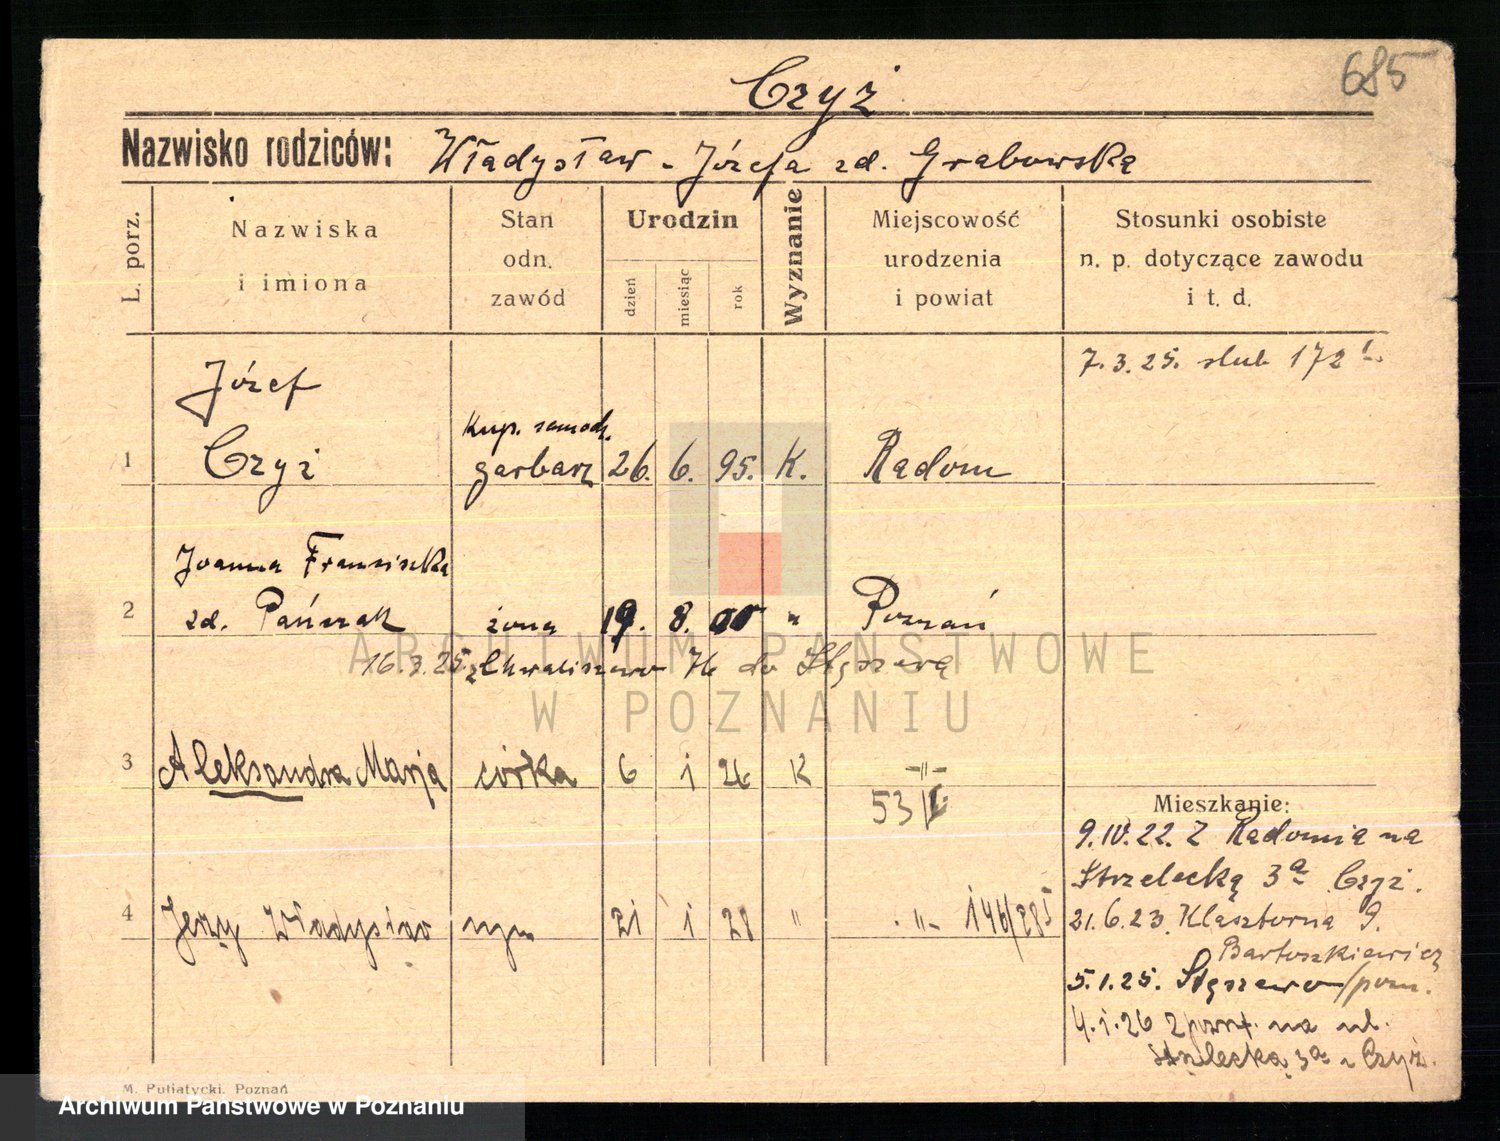 Czyż
685
Nazwisko rodziców: Władysław - Józefa zd. Grabowską
L. porz.
Nazwiska
i imiona
Stan
odn.
zawód
Urodzin
dzień
miesiąc
rok
Wyznanie
Miejscowość
urodzenia
i powiat
Stosunki osobiste
n. p. dotyczące zawodu
i t. d.
7.3.25. slub 172
Józef
Kup. samodz.
1 Czyż garbarz 26. 6. 95. K. Radom
Joanna Franciszka
2 zd. Pańczak żona 19. 8. 00 " Poznań
16.3.25. z Chwaliszewo 76 do Stęszewa
ARCHIWUM PAŃSTWOWE
W POZNANIU
3 Aleksandra Marja córka 6 1 26 K -"-
53
Mieszkanie:
9.IV.22. Z Radomia na
Strzelecką 3a Czyż.
4 Jerzy Władysław syn 21 1 28 " -"- 146/285
21.6.23. Klasztorna 9.
Bartoszkiewicz
5.1.25. Stęszewo/pozn.
4.1.26 z powr. na ul.
Strzelecką 3a u Czyż.
M. Putiatycki, Poznań
Archiwum Państwowe w Poznaniu